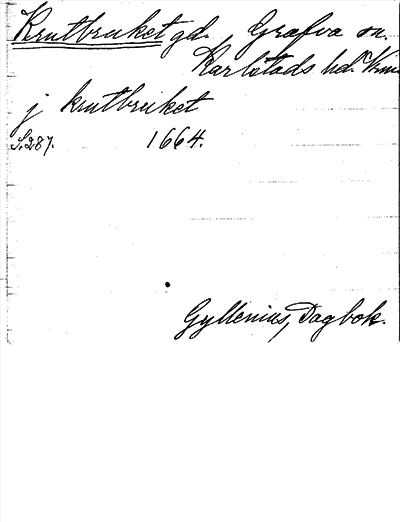 Krutbruket gd. Grafva sn.
Karlstads hd. Vrml
j krutbruket
S. 287. 1664.
Gyllenius, Dagbok.